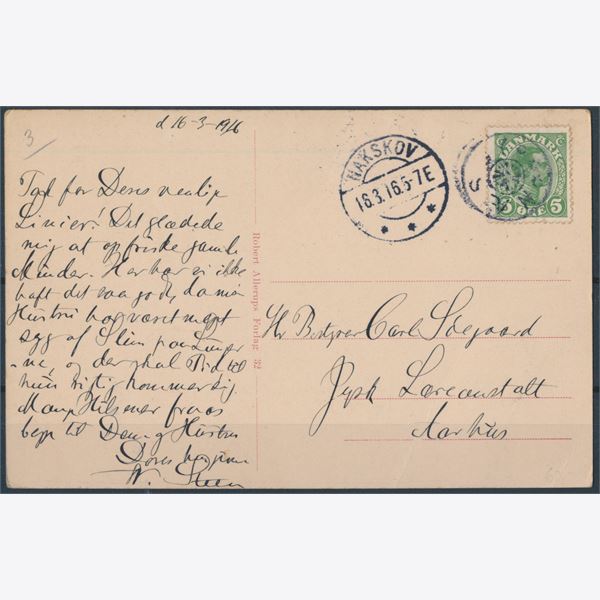 3
d 16-3-1916
Tak for Deres venlige
Linier! Det glædede
mig at opfriske gamle
Minder. Her har vi ikke
haft det saa godt, da min
Hustru har været meget
syg af Slim paa Lunger
-ne, og der skal Tid til
hun rigtig kommer sig.
Mange Hilsener fra os
begge til Dem og Hustru
Deres hengivne
Robert Allerups Forlag 32
NAKSKOV
16.3.16.5-7E
DANMARK
5 ØRE 5
Hr Bestyrer Carl Søegaard
Jysk Læreanstalt
Aarhus